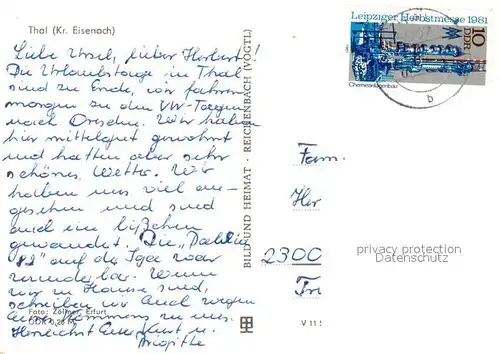 Thal (Kr. Eisenach)
Liebe Ursel, lieber Herbert!
Die Urlaubstage in Thal
sind zu Ende, wir fahren
morgen zu den VW-Tagen
nach Dresden. Wir haben
hier mittelgut gewohnt
und hatten aber sehr
schönes Wetter. Wir
haben uns viel an-
gesehen und sind
auch ein bißchen
gewandert. Die „Dahlia
82" auf der Iga war
wunderbar. Wenn
wir zu Hause sind,
schreiben wir Euch wegen
Eures Kommens zu uns.
Herzlichst Euer Kurt u.
Brigitte
Foto: Zöllner, Erfurt
DDR 0,20 M
BILD UND HEIMAT · REICHENBACH (VOGTL)
Leipziger Herbstmesse 1981
10
DDR
Chemieanlagenbau
b
Fam.
Her
2300
privacy protection
Datenschutz
V 11